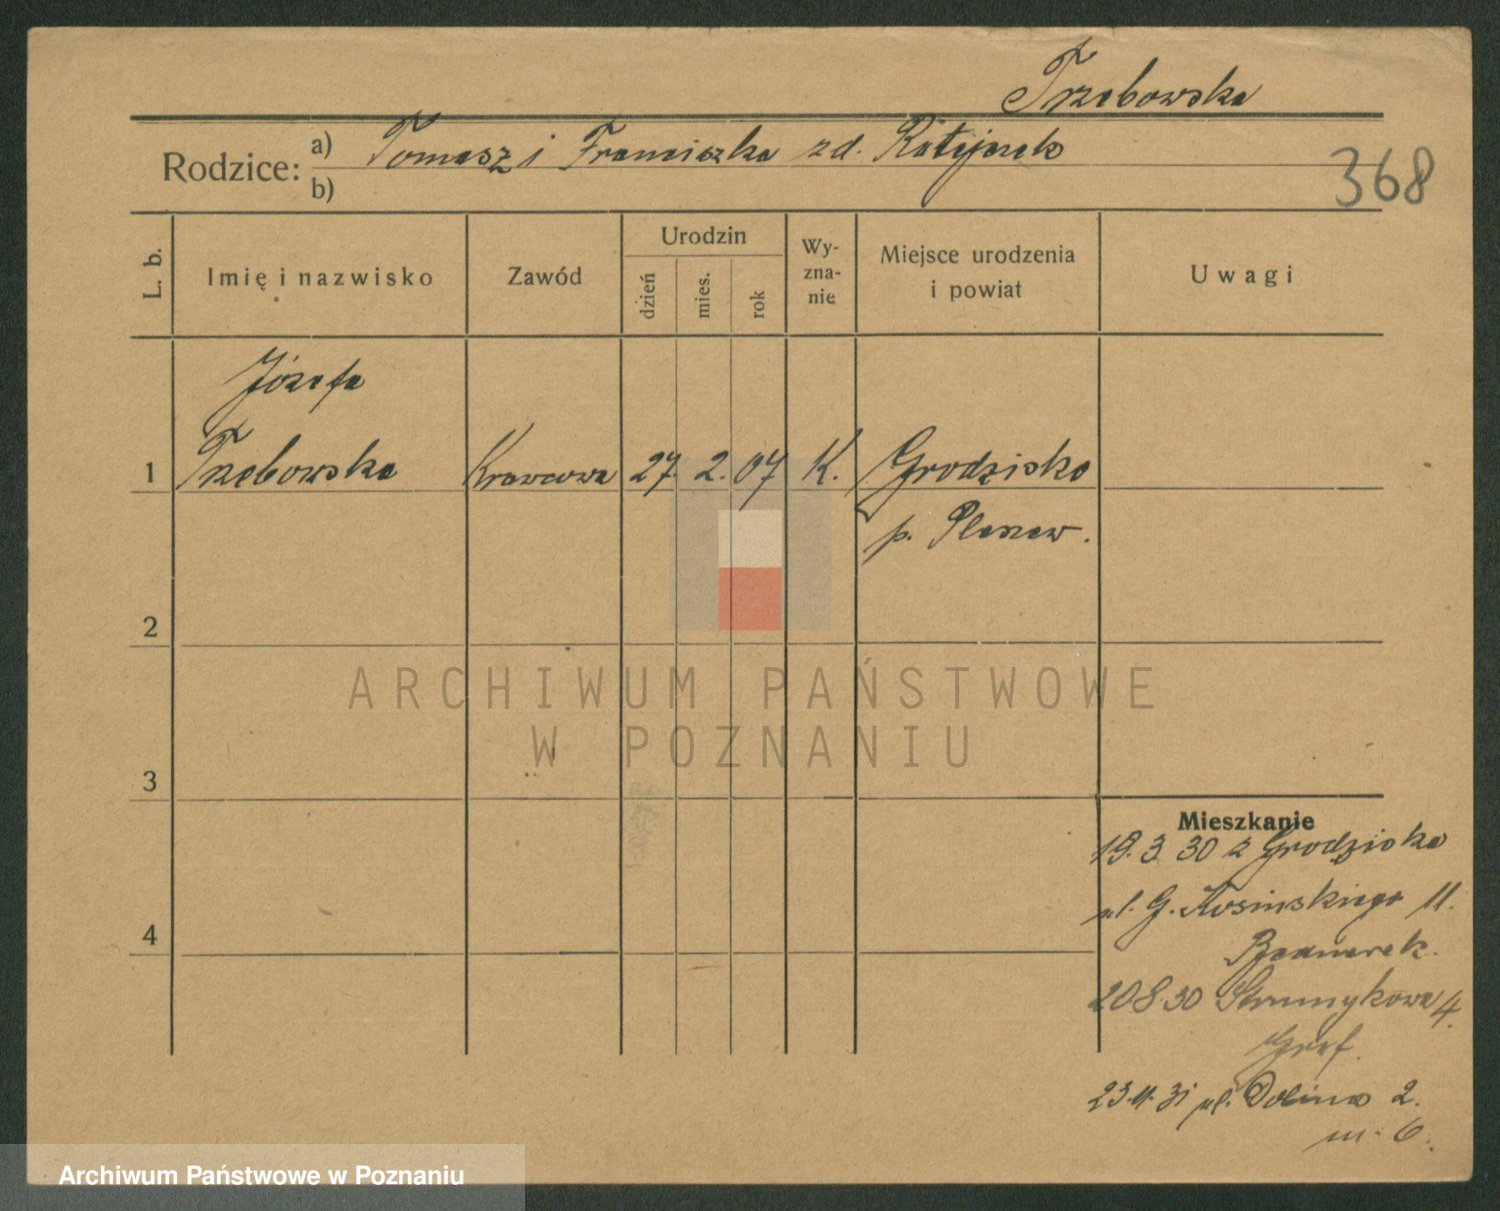 Trzebowska
Rodzice: a) Tomasz i Franciszka zd. Ratajczak
b)
368
L. b.
Imię i nazwisko
Zawód
Urodzin
dzień
mies.
rok
Wy-
zna-
nie
Miejsce urodzenia
i powiat
Uwagi
Józefa
1 Trzebowska Krawcowa 27. 2. 07 K. Grodzisko
p. Pleszew.
2
3
4
Mieszkanie
19.3.30 z Grodziska
ul. G. Kosińskiego 11.
Bednarek.
20 8 30 Strumykowa 4.
Graf.
23.11.31 ul. Dolina 2.
m. 6.
ARCHIWUM PAŃSTWOWE
W POZNANIU
Archiwum Państwowe w Poznaniu